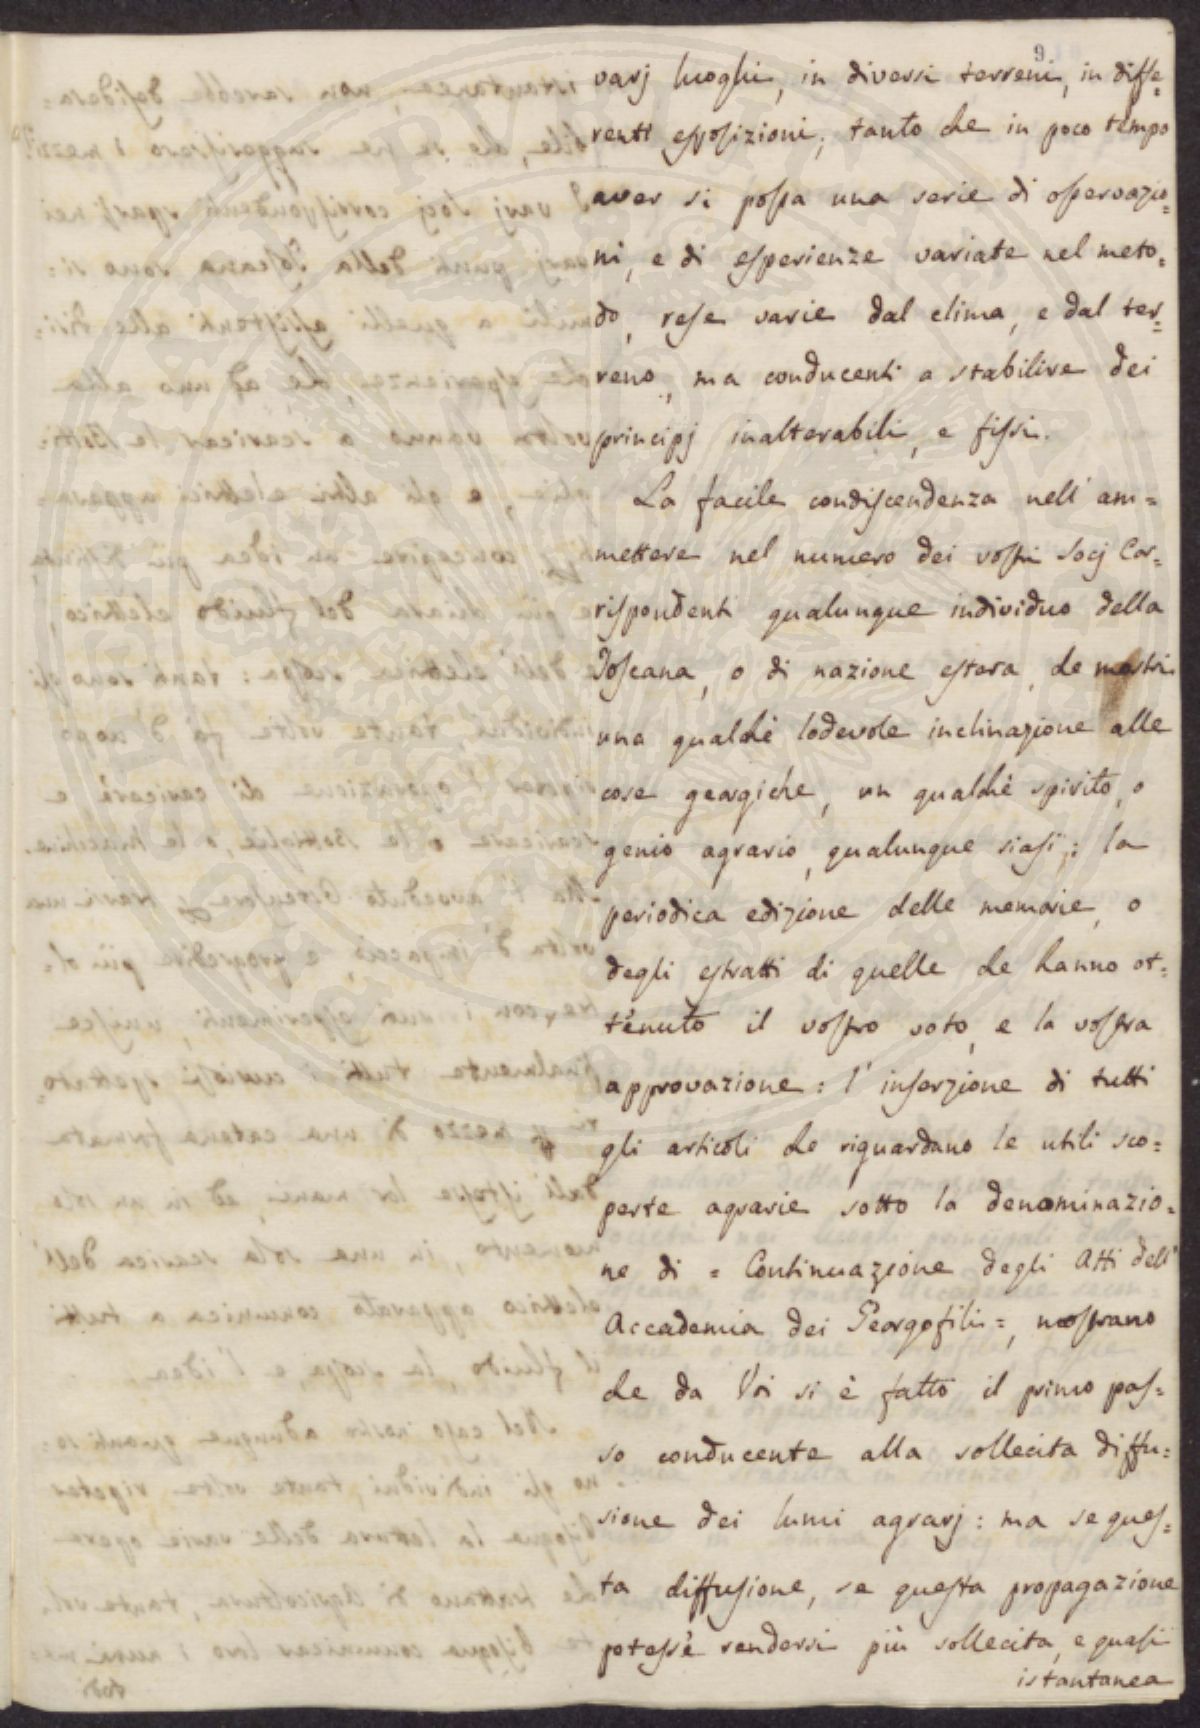 9
varj luoghi, in diversi terreni, in diffe=
renti esposizioni, tanto che in poco tempo
aver si possa una serie di osservazio=
ni, e di esperienze variate nel meto=
do, rese varie dal clima, e dal ter=
reno, ma conducenti a stabilire dei
principj inalterabili, e fissi.
La facile condiscendenza nell' am=
mettere nel numero dei vostri Socj Cor=
rispondenti qualunque individuo della
Toscana, o di nazione estera, che mostri
una qualchè lodevole inclinazione alle
cose georgiche, un qualchè spirito, o
genio agrario, qualunque siasi; la
periodica edizione delle memorie, o
degli estratti di quelle che hanno ot=
tenuto il vostro voto, e la vostra
approvazione: l' inserzione di tutti
gli articoli che riguardano le utili sco=
perte agrarie sotto la denominazio=
ne di = Continuazione degli Atti dell'
Accademia dei Georgofili =, mostrano
che da Voi si è fatto il primo pas=
so conducente alla sollecita diffu=
sione dei lumi agrarj: ma se ques=
ta diffusione, se questa propagazione
potesse rendersi più sollecita, e quasi
istantanea